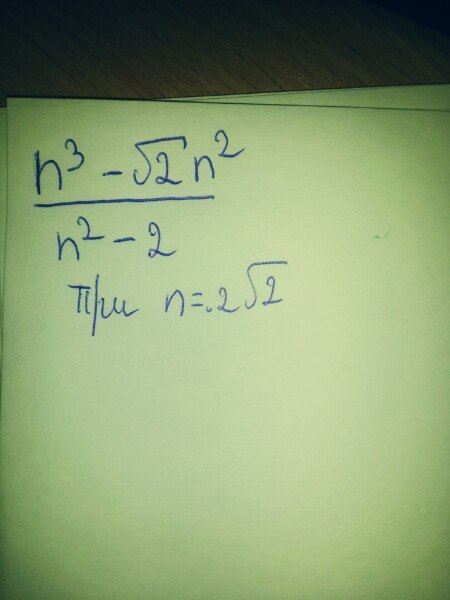 n³ - √2 n²
n² - 2
при n = 2√2